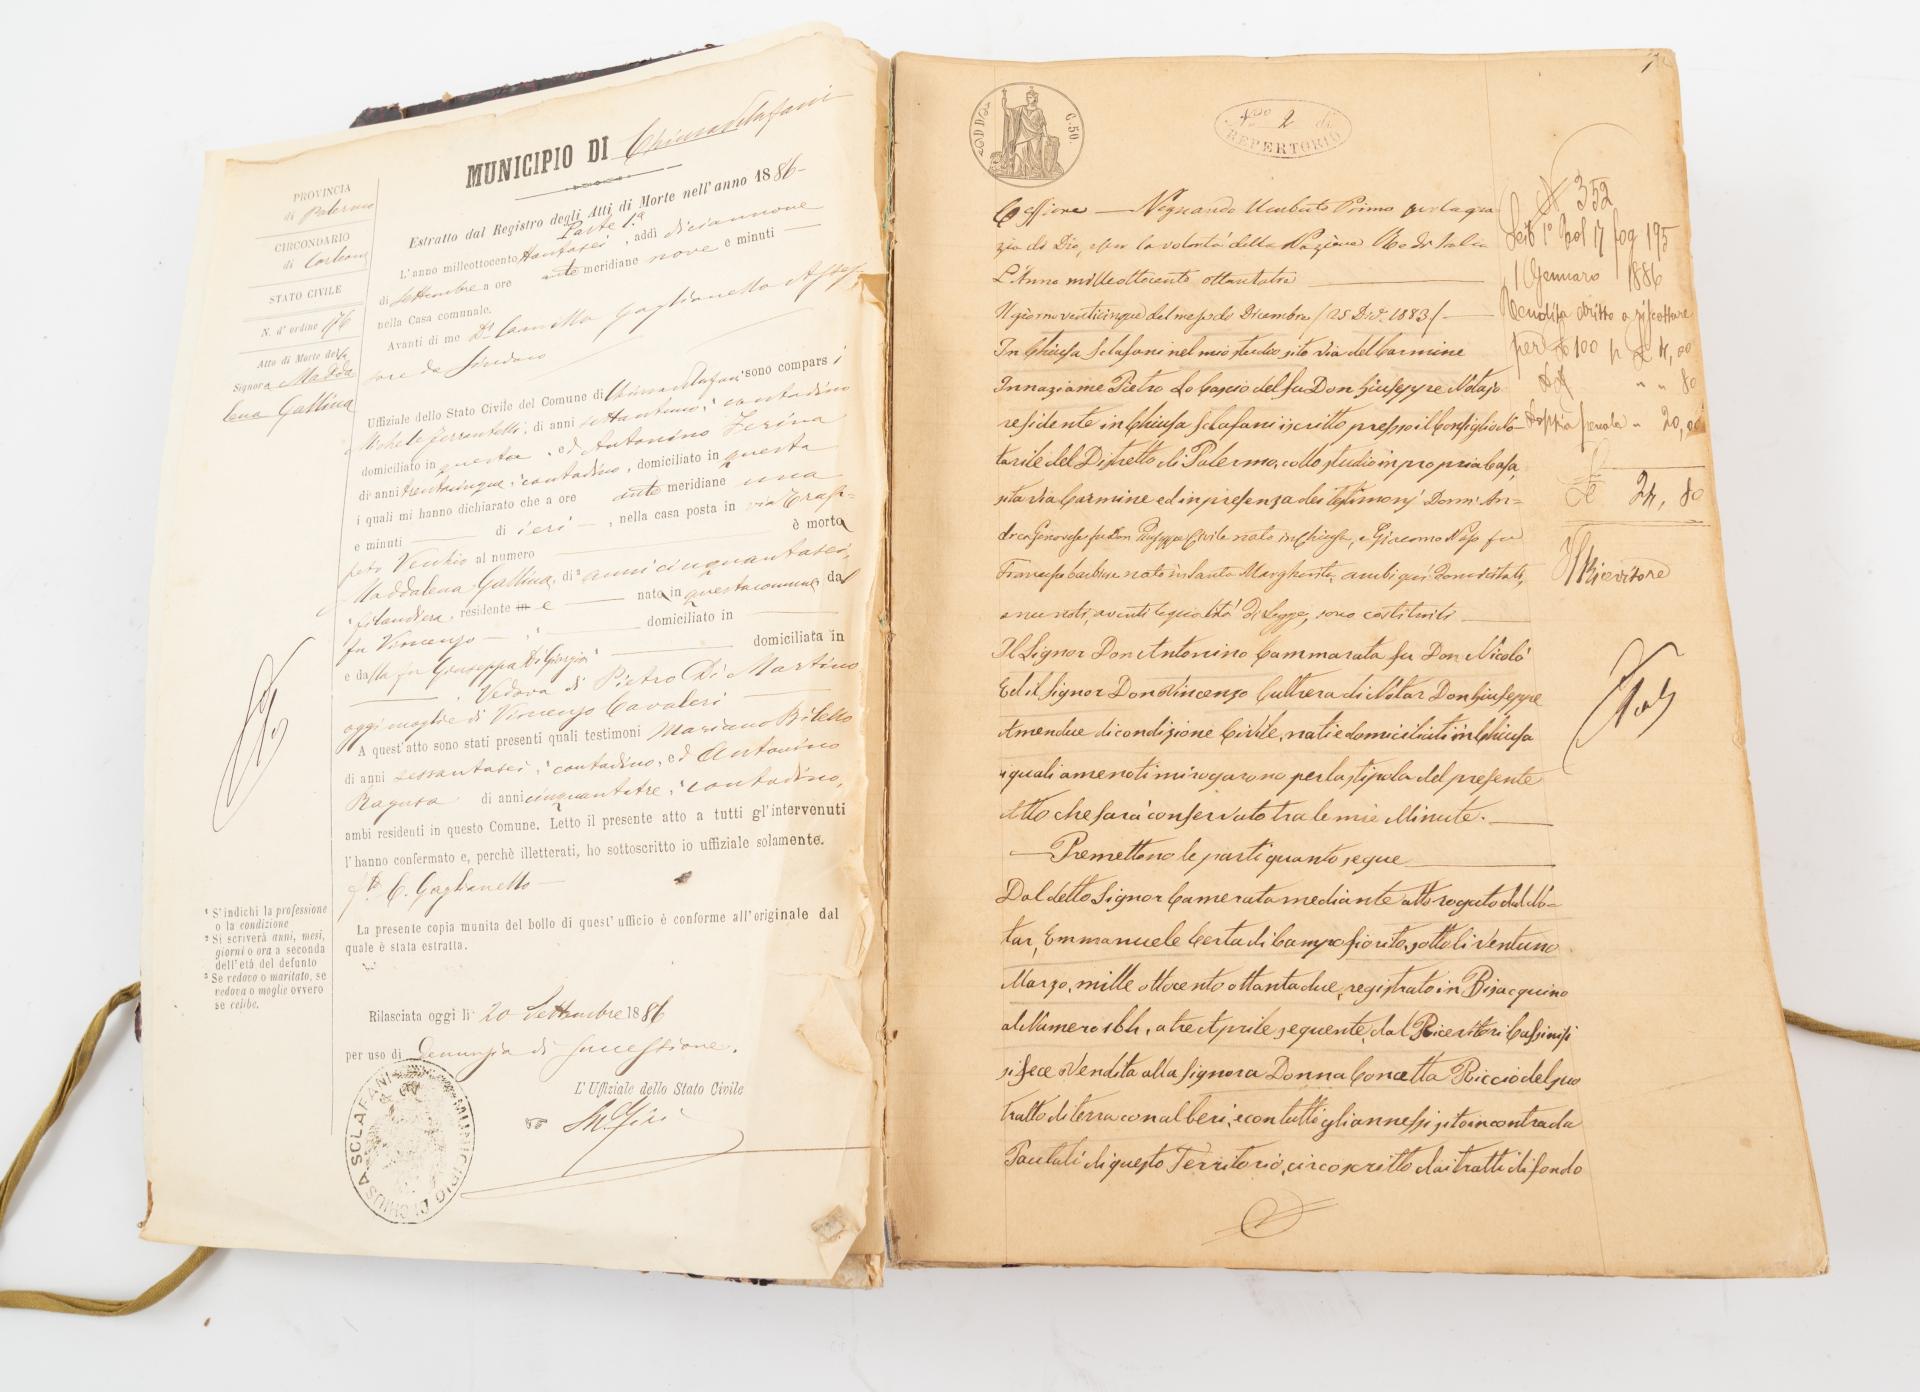 PROVINCIA
di Palermo
CIRCONDARIO
di Corleone
STATO CIVILE
N. d'ordine 176
Atto di Morte della
Signora Madda
lena Gallina
¹ S'indichi la professione
o la condizione
² Si scriverà anni, mesi,
giorni o ora a seconda
dell'età del defunto
³ Se vedovo o maritato, se
vedova o moglie ovvero
se celibe.
MUNICIPIO DI Chiusa Sclafani
Estratto dal Registro degli Atti di Morte nell'anno 1886
Parte 1.ª
L'anno milleottocento ottantasei, addì diciannove
di Settembre a ore ante meridiane nove e minuti
nella Casa comunale.
Avanti di me Dr Camillo Gaglianello Asses
sore da Sindaco
Uffiziale dello Stato Civile del Comune di Chiusa Sclafani sono comparsi
Michele Ferrantelli, di anni settantuno, contadino
domiciliato in questa, ed Antonino
di anni trentacinque, contadino, domiciliato in questa
i quali mi hanno dichiarato che a ore ante meridiane una
e minuti di ieri, nella casa posta in via Crasi-
feto Vecchio al numero è morta
Maddalena Gallina, di anni cinquantasei,
filandiera, residente in e nata in questa comune, dal
fu Vincenzo domiciliato in
e dalla fu Giuseppa Di Giorgio domiciliata in
Vedova di Pietro Di Martino
oggi moglie di Vincenzo Cavaleri
A quest'atto sono stati presenti quali testimoni Mariano Biletto
di anni sessantasei, contadino, ed Antonino
Ragusa di anni cinquantatre, contadino,
ambi residenti in questo Comune. Letto il presente atto a tutti gl'intervenuti
l'hanno confermato e, perchè illetterati, ho sottoscritto io uffiziale solamente.
C. Gaglianello
La presente copia munita del bollo di quest'ufficio è conforme all'originale dal
quale è stata estratta.
Rilasciata oggi lì 20 Settembre 1886
per uso di Denunzia di successione.
L'Uffiziale dello Stato Civile
MUNICIPIO DI CHIUSA SCLAFANI
C. 50.
N.° 2 di
REPERTORIO
Cessione — Regnando Umberto Primo per la gra
zia di Dio, e per la volontà della Nazione Re d'Italia
L'Anno milleottocento ottantatre
Il giorno venticinque del mese di Dicembre (25 Dic. 1883)
In Chiusa Sclafani nel mio studio, sito via del Carmine
Innazi me Pietro Lo Cascio del fu Don Giuseppe Notajo
residente in Chiusa Sclafani iscritto presso il Consiglio No-
tarile del Distretto di Palermo, collo studio in propria Casa,
sita via Carmine ed in presenza dei testimonj Don An-
drea Genovese fu Don Giuseppe Civile nato in Chiusa, e Giacomo fu
Francesco barbiere nato in Santa Margherita, ambi qui domiciliati,
a me noti, aventi le qualità di Legge, sono costituiti
Il Signor Don Antonino Cammarata fu Don Nicolò
Ed il Signor Don Vincenzo Cultrera di Notar Don Giuseppe
Amendue di condizione Civile, nati e domiciliati in Chiusa
i quali a me noti mi rogarono per la stipola del presente
Atto che sarà conservato tra le mie Minute.
Premettono le parti quanto segue
Dal detto Signor Camerata mediante atto rogato dal No-
tar, Emmanuele Certa di Campofiorito, sotto lì ventuno
Marzo, mille ottocento ottantadue, registrato in Bisacquino
al Numero 164, a tre Aprile seguente, dal Ricevitori Cassinisi
si fece vendita alla Signora Donna Concetta Riccio del suo
tratto di terra con alberi, e con tutti gli annessi sito in contrada
di questo Territorio, circoscritto dai tratti di fondo
N 352
Lib 1° Vol 17 fog 195
1 Gennaro 1886
Vendita dritto a riscattare
per 100 4,00
" " 80
doppia penale " 20,00
24,80
Il Ricevitore